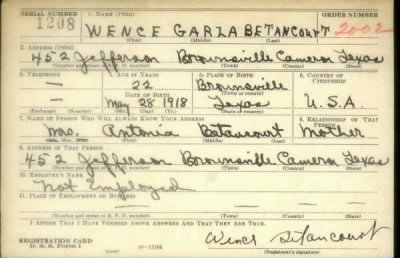 SERIAL NUMBER 1. NAME (Print) ORDER NUMBER
1208 WENCE GARZA BETANCOURT 2002
(First) (Middle) (Last)
2. ADDRESS (Print)
452 Jefferson Brownsville Cameron Texas
(Number and street or R. F. D. number) (Town) (County) (State)
3. TELEPHONE 4. AGE IN YEARS 5. PLACE OF BIRTH 6. COUNTRY OF CITIZENSHIP
— 22 Brownsville
DATE OF BIRTH (Town or county)
— May 28 1918 Texas U.S.A.
(Exchange) (Number) (Mo.) (Day) (Yr.) (State or country)
7. NAME OF PERSON WHO WILL ALWAYS KNOW YOUR ADDRESS 8. RELATIONSHIP OF THAT PERSON
Mrs. Antonia Betancourt Mother
(Mr., Mrs., Miss) (First) (Middle) (Last)
9. ADDRESS OF THAT PERSON
452 Jefferson Brownsville Cameron Texas
(Number and street or R. F. D. number) (Town) (County) (State)
10. EMPLOYER'S NAME
Not Employed
11. PLACE OF EMPLOYMENT OR BUSINESS
(Number and street or R. F. D. number) (Town) (County) (State)
I AFFIRM THAT I HAVE VERIFIED ABOVE ANSWERS AND THAT THEY ARE TRUE.
REGISTRATION CARD
D. S. S. FORM 1
Wence Betancourt
(Registrant's signature)